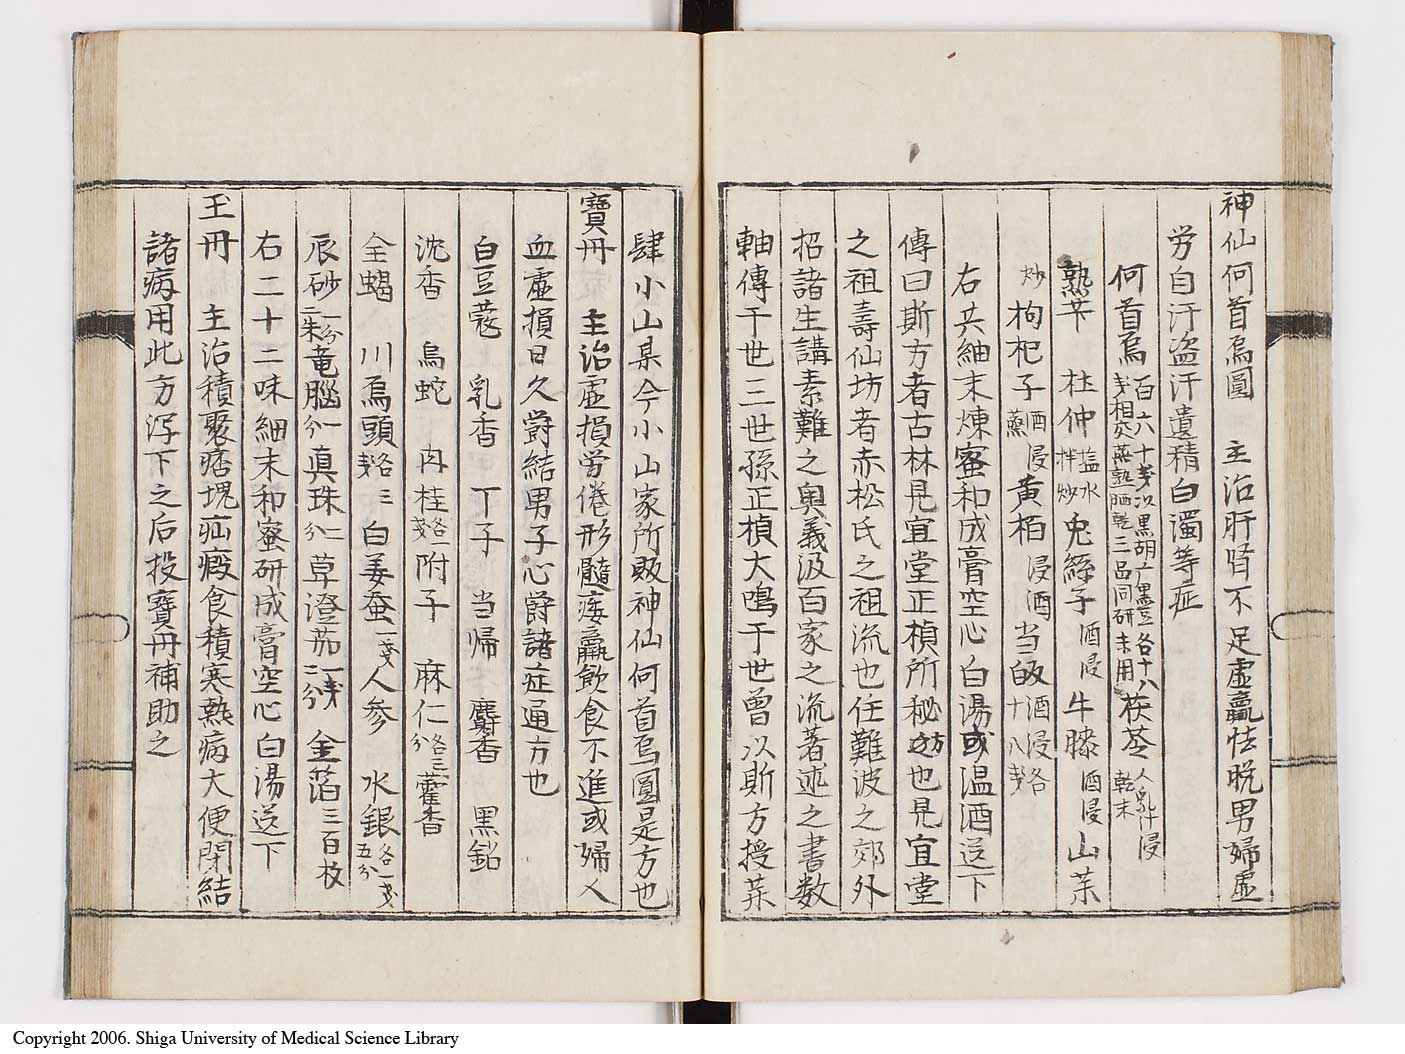 神仙何首烏圓　主治肝腎不足虚羸怯脱男婦虚
労自汗盗汗遺精白濁等症
何首烏百六十戔以黒胡广黒豆各十八戔相交蒸熟晒乾三品同研末用茯苓人乳汁浸乾末
熟芐　杜仲塩水拌炒兎絲子酒浸牛膝酒浸山茱
炒枸杞子酒浸蒸黄栢浸酒当皈酒浸各十八戔
右共細末煉蜜和成膏空心白湯或温酒送下
傳曰斯方者古林見宜堂正槙所秘之方也見宜堂
之祖壽仙坊者赤松氏之祖流也住難波之郊外
招諸生講素難之奥義汲百家之流著述之書数
軸傳干世三世孫正槙大鳴于世曽以斯方授某
肆小山某今小山家所販神仙何首烏圓是方也
寶丹　主治虚損労倦形髓痿羸飲食不進或婦人
血虚損日久欝結男子心欝諸症通方也
白豆蔻　乳香　丁子　当帰　麝香　黒鉛
沈香　烏蛇　肉桂各一戔附子　麻仁各三分藿香
全蝎　川烏頭各三戔白姜蚕一戔人参　水銀各一戔五分
辰砂一分二朱竜脳一分真珠二分草澄茄一戔二分　金箔三百枚
右二十二味細末和蜜研成膏空心白湯送下
玉丹　主治積聚痞塊疝瘕食積寒熱病大便閉結
諸病用此方浮下之后投寶丹補助之
Copyright 2006. Shiga University of Medical Science Library